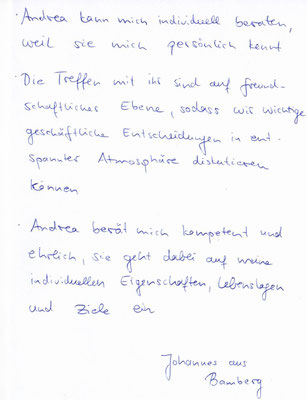 · Andrea kann mich individuell beraten,
weil sie mich persönlich kennt
· Die Treffen mit ihr sind auf freund-
schaftlicher Ebene, sodass wir wichtige
geschäftliche Entscheidungen in ent-
spannter Atmosphäre diskutieren
können
· Andrea berät mich kompetent und
ehrlich, sie geht dabei auf meine
individuellen Eigenschaften, Lebenslagen
und Ziele ein
Johannes aus
Bamberg